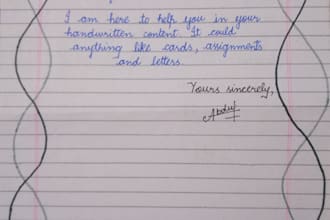 I am here to help you in your
handwritten content. It could
anything like cards, assignments
and letters.
Yours sincerely,